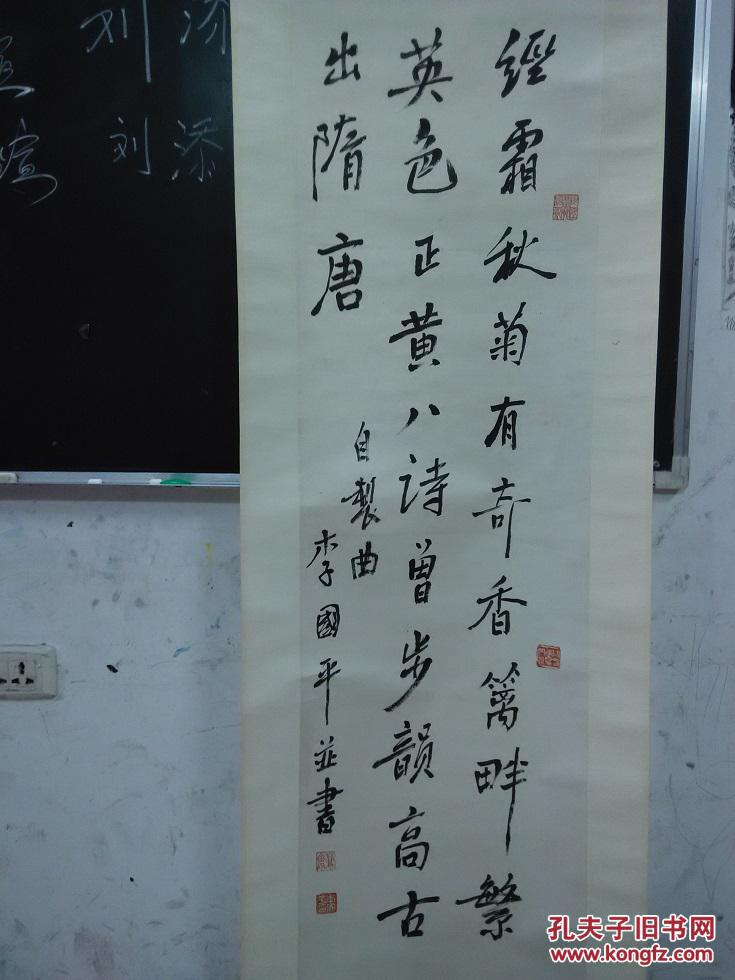 經霜秋菊有奇香籬畔繁
英色正黄八詩曾步韻高古
出隋唐
自製曲
李國平並書
刘 添
刘 添
孔夫子旧书网
www.kongfz.com